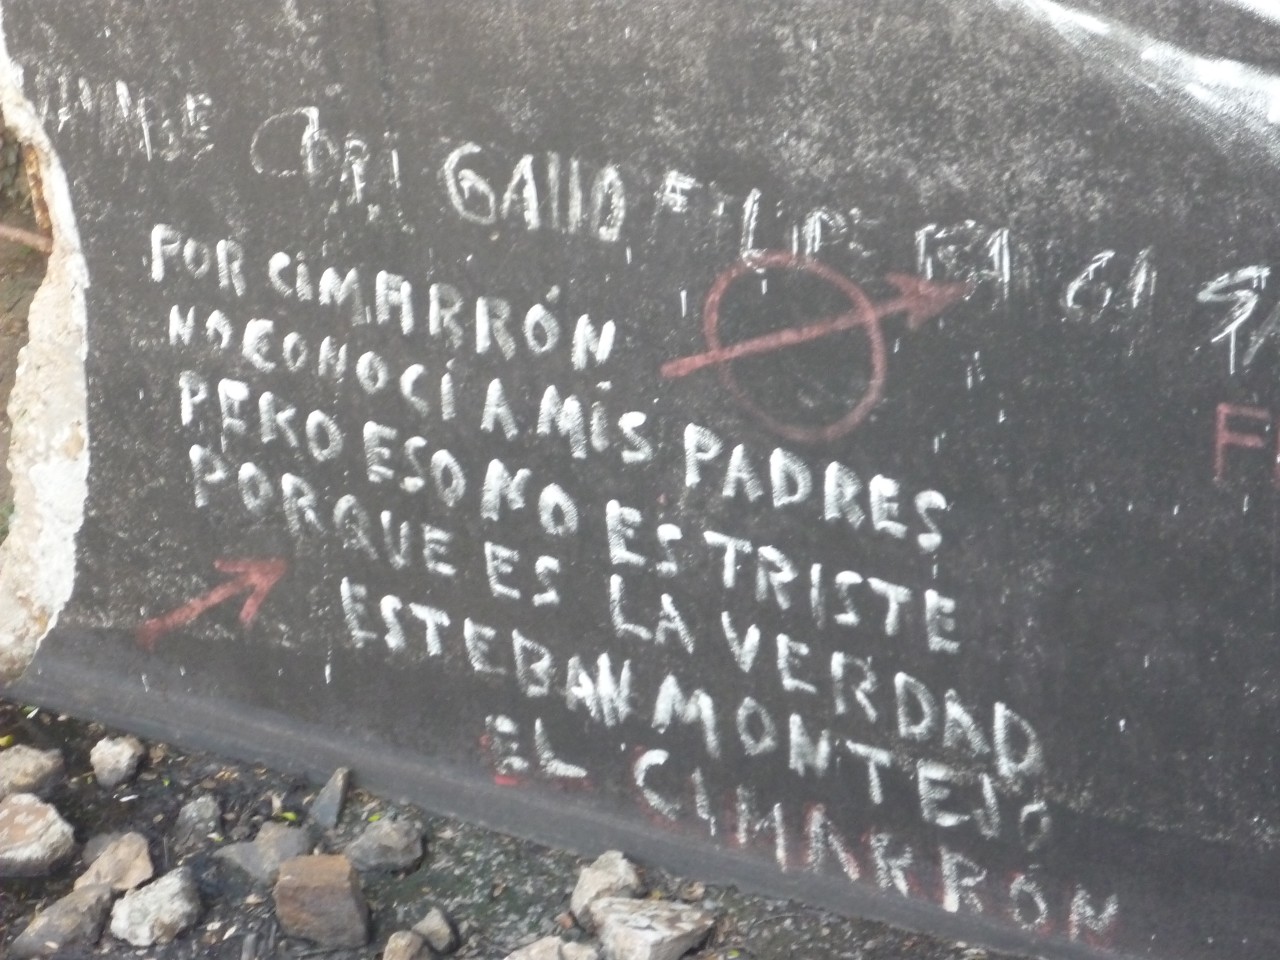 GALLO
POR CIMARRÓN
NO CONOCÍ A MIS PADRES
PERO ESO NO ES TRISTE
PORQUE ES LA VERDAD
ESTEBAN MONTEJO
EL CIMARRÓN